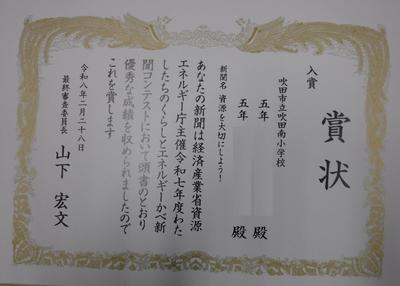 賞状
入賞
吹田市立吹田南小学校
五年 殿
五年 殿
新聞名 資源を大切にしよう!
あなたの新聞は経済産業省資源
エネルギー庁主催令和七年度わた
したちのくらしとエネルギーかべ新
聞コンテストにおいて頭書のとおり
優秀な成績を収められましたので
これを賞します
令和八年二月二十八日
最終審査委員長 山下 宏文